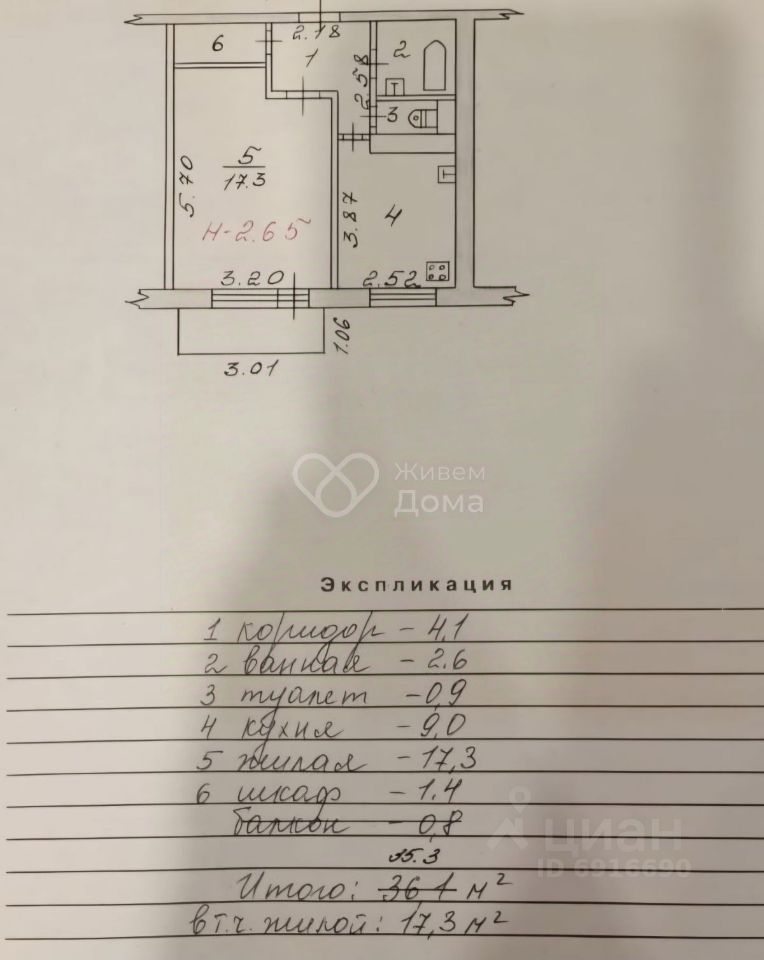 2.18
6
1
2
2.58
3
5
17.3
5.70
3.87
4
Н-2.65
3.20
2.52
1.06
3.01
Живем
Дома
Экспликация
1 коридор - 4,1
2 ванная - 2.6
3 туалет - 0,9
4 кухня - 9,0
5 жилая - 17,3
6 шкаф - 1.4
балкон - 0,8
35.3
Итого: 36,1 м²
в т.ч. жилой: 17,3 м²
циан
ID 6916690